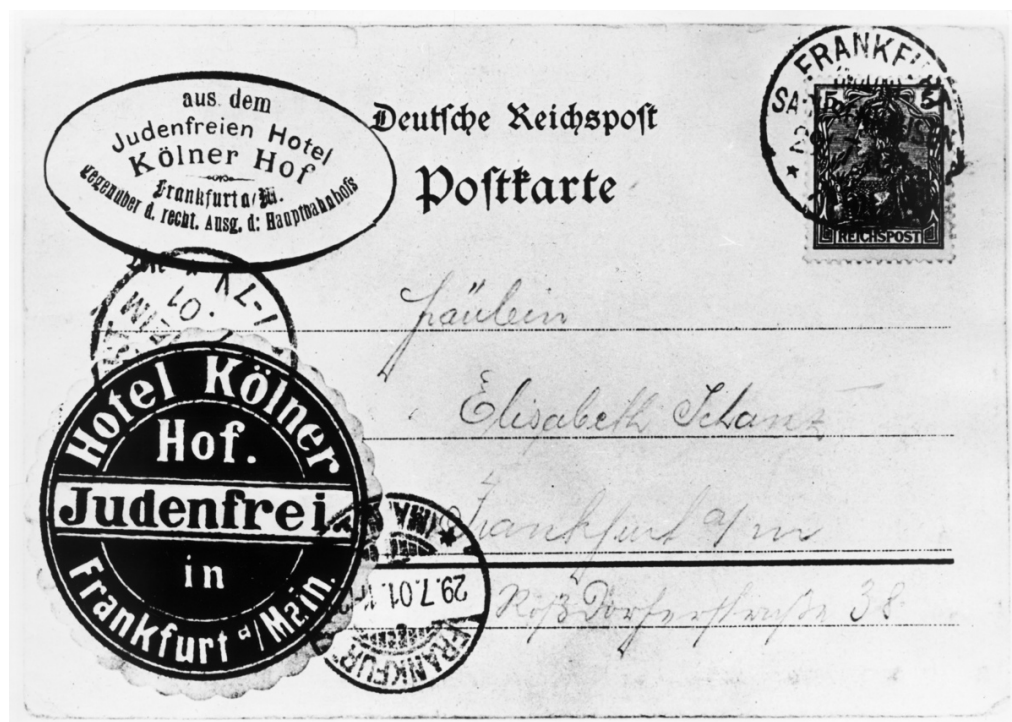 aus dem
Judenfreien Hotel
Kölner Hof
Frankfurt a/M.
gegenüber d. recht. Ausg. d: Hauptbahnhofs
Deutsche Reichspost
Postkarte
FRANKFU
5
REICHSPOST
Fräulein
Elisabeth Schanz
Frankfurt a/m
Roßdorferstraße 38
Hotel Kölner
Hof.
Judenfrei
in
Frankfurt a/Main.
29.7.01.
FRANKFUR